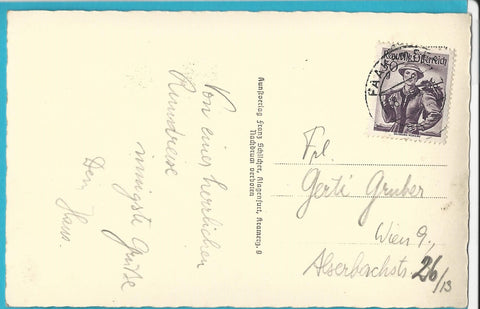 Von einer herrlichen
Rundreise
innigste Grüße
Dein Hans.
Kunstverlag Franz Schilcher, Klagenfurt, Kramerg. 9
Nachdruck verboten
Republik Österreich
FAAK
Frl.
Gerti Gruber
Wien 9.,
Alserbachstr. 26/13